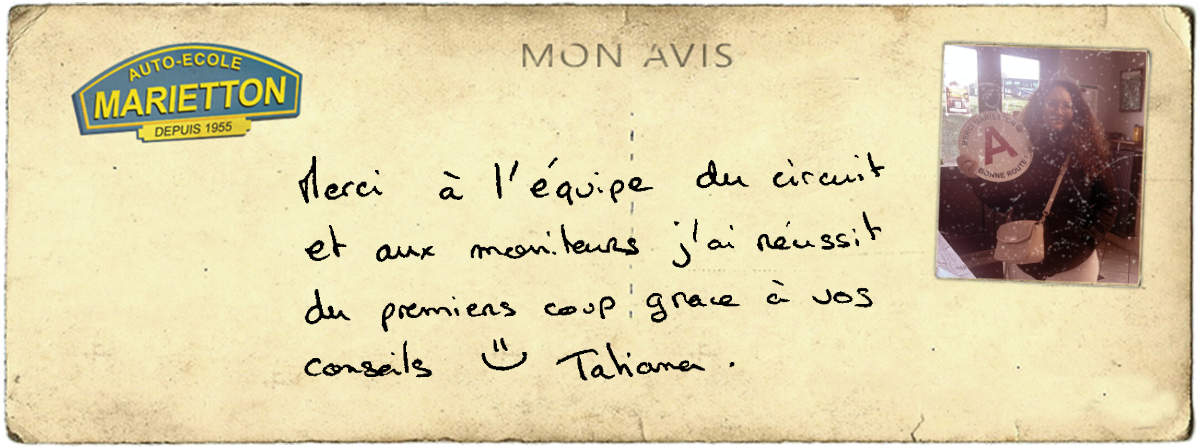 AUTO-ECOLE
MARIETTON
DEPUIS 1955
MON AVIS
Merci à l'équipe du circuit
et aux moniteurs j'ai réussit
du premiers coup grace à vos
conseils Tatiana.
A
BONNE ROUTE!